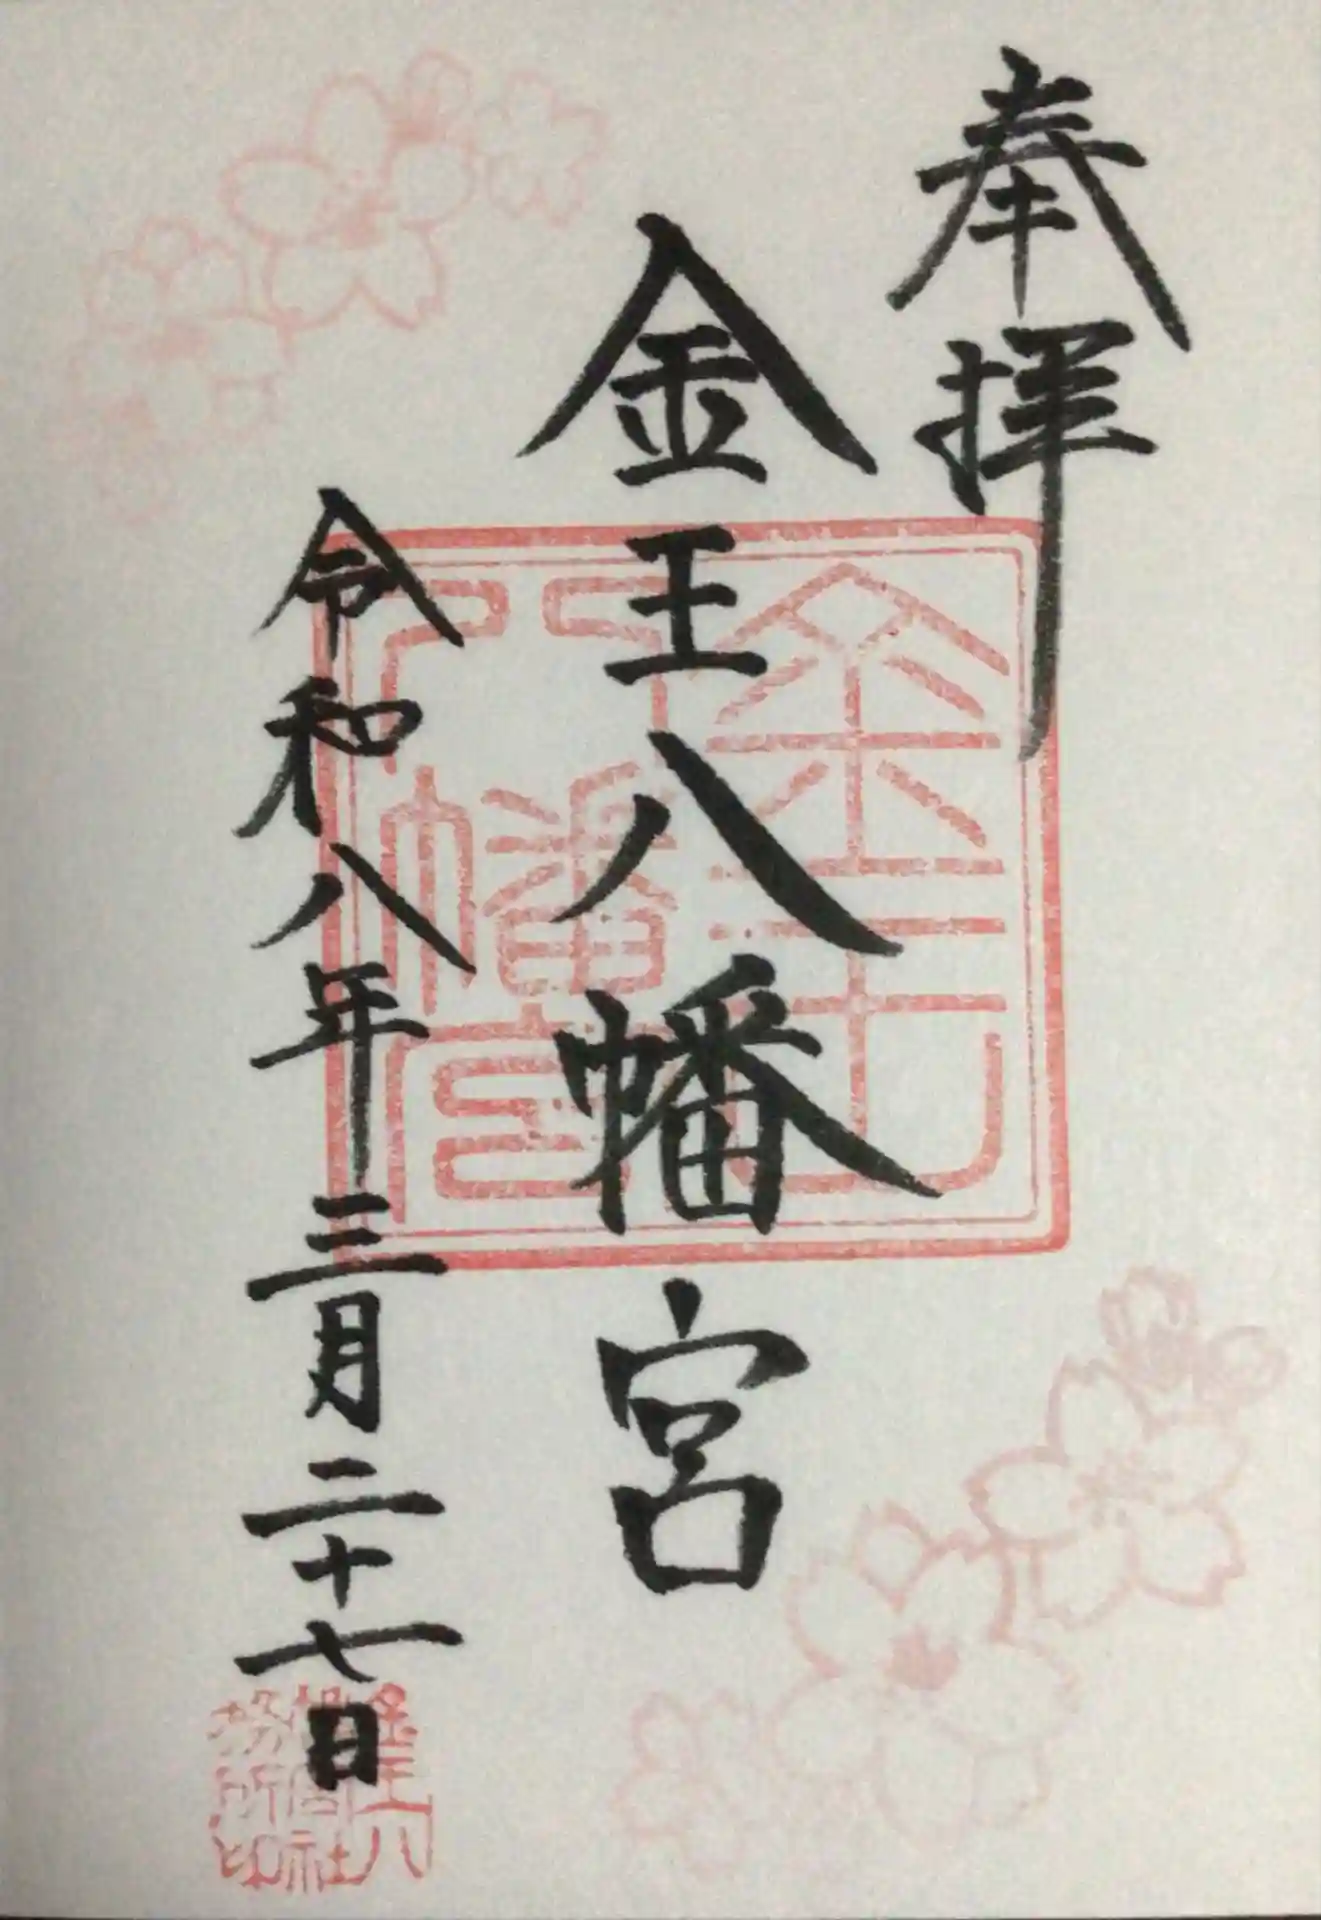 奉拝
金王八幡宮
令和八年三月二十七日
金王八幡宮
金王八幡宮社務所印